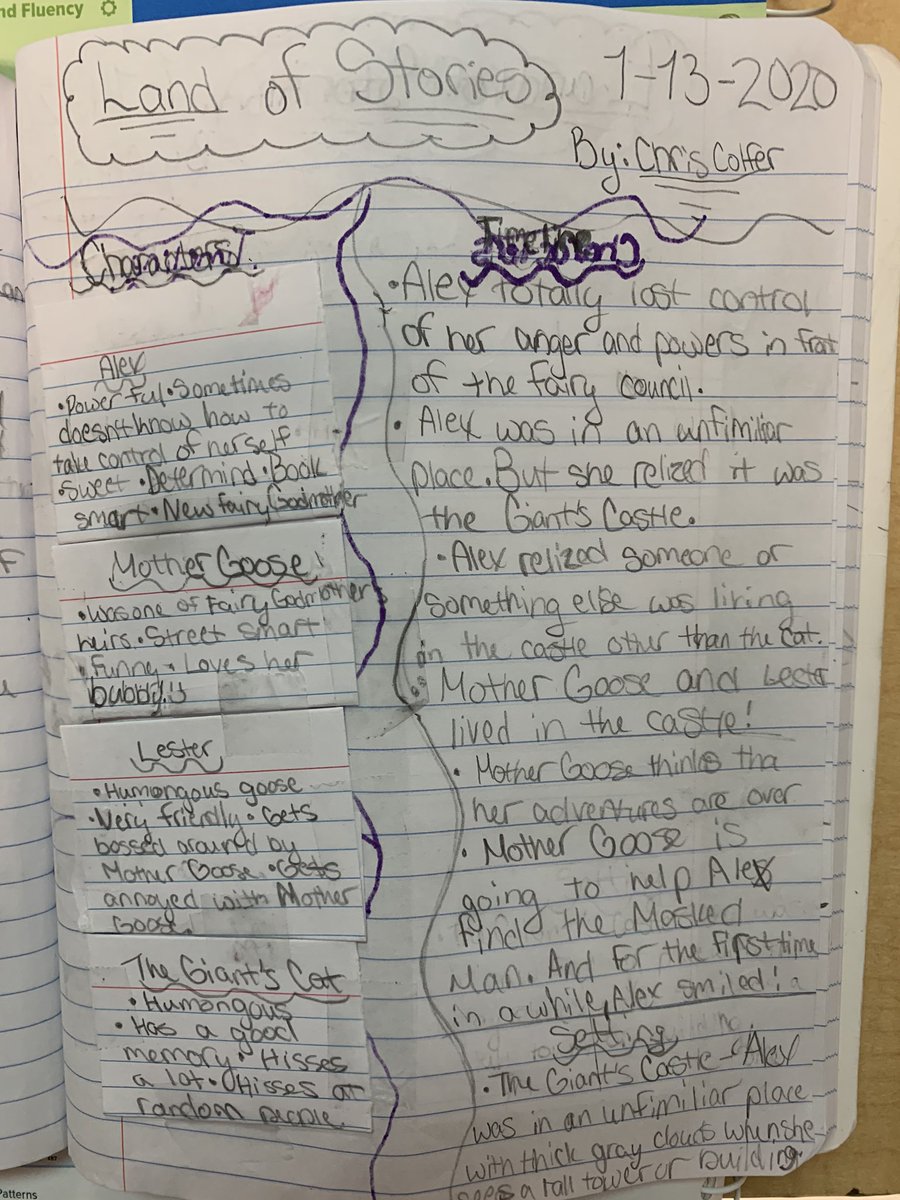 nd Fluency
Land of Stories
1-13-2020
By: Chris Colfer
Characters!
Alex
•Powerful•Sometimes
doesn't know how to
take control of herself
•sweet•Determind•Book
smart•New Fairy Godmother
Mother Goose
•Was one of Fairy Godmothers
heirs.•Street smart
•Funny•Loves her
bubbly
Lester
•Humongous goose
•Very friendly•Gets
bossed around by
Mother Goose•Gets
annoyed with Mother
Goose.
The Giant's Cat
•Humongous
•Has a good
memory•Hisses
a lot•Hisses at
random people.
Timeline
•Alex totally lost control
of her anger and powers in front
of the fairy council.
•Alex was in an unfimiliar
place. But she relized it was
the Giant's Castle.
•Alex relized someone or
something else was living
in the castle other than the cat.
Mother Goose and Lester
lived in the castle!
•Mother Goose thinks tha
her adventures are over
•Mother Goose is
going to help Alex
find the Masked
Man. And for the first time
in a while, Alex smiled!
Setting
•The Giant's Castle - Alex
was in an unfimiliar place
with thick gray clouds when she
sees a tall tower or building
Patterns